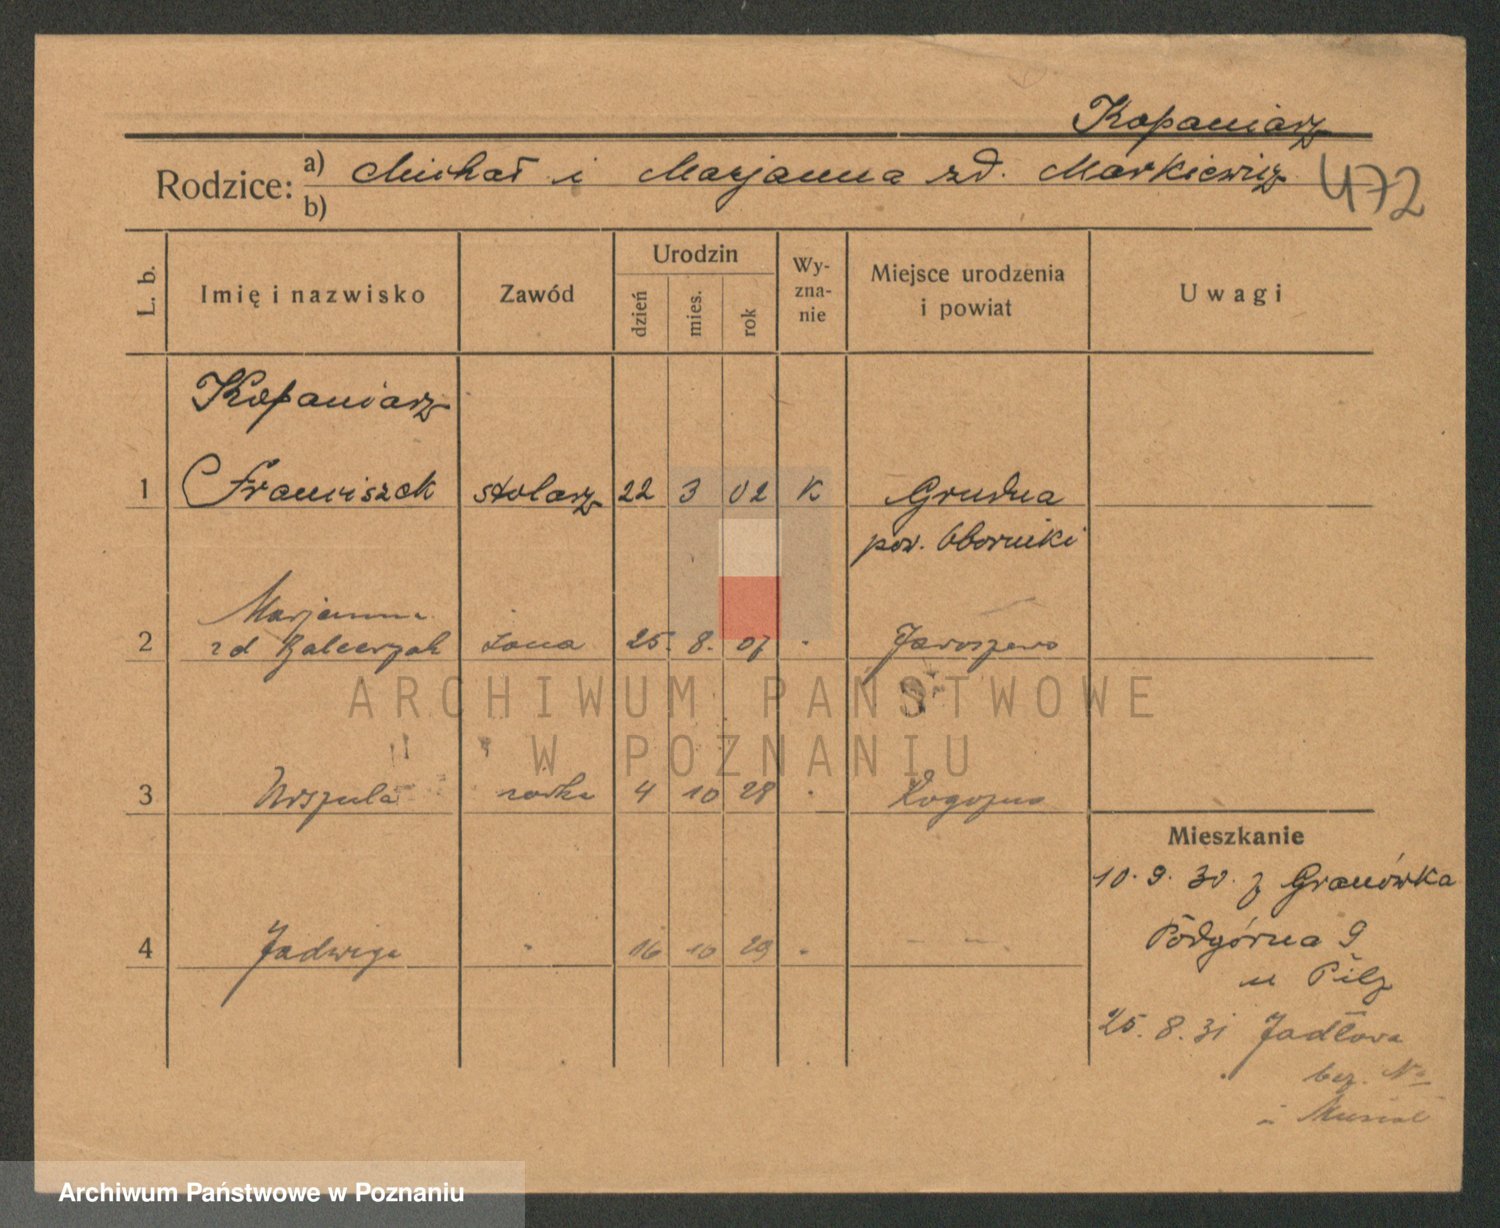 Kopaniarz
Rodzice: a) Michał i Marjanna zd. Markiewicz
b)
472
L. b.
Imię i nazwisko
Zawód
Urodzin
dzień
mies.
rok
Wy-
zna-
nie
Miejsce urodzenia
i powiat
Uwagi
Kopaniarz
1 Franciszek stolarz 22 3 02 K Grudna
pow. Oborniki
Marjanna
2 zd Balcerzak żona 25. 8. 07 Jaroszewo
ARCHIWUM PAŃSTWOWE
W POZNANIU
3 Urszula córka 4 10 28 Rogoźno
Mieszkanie
10. 9. 30. z Granówka
4 Jadwiga 16 10 29
Podgórna 9
u Pilz
25. 8. 31 Jodłowa
bez. No
Archiwum Państwowe w Poznaniu